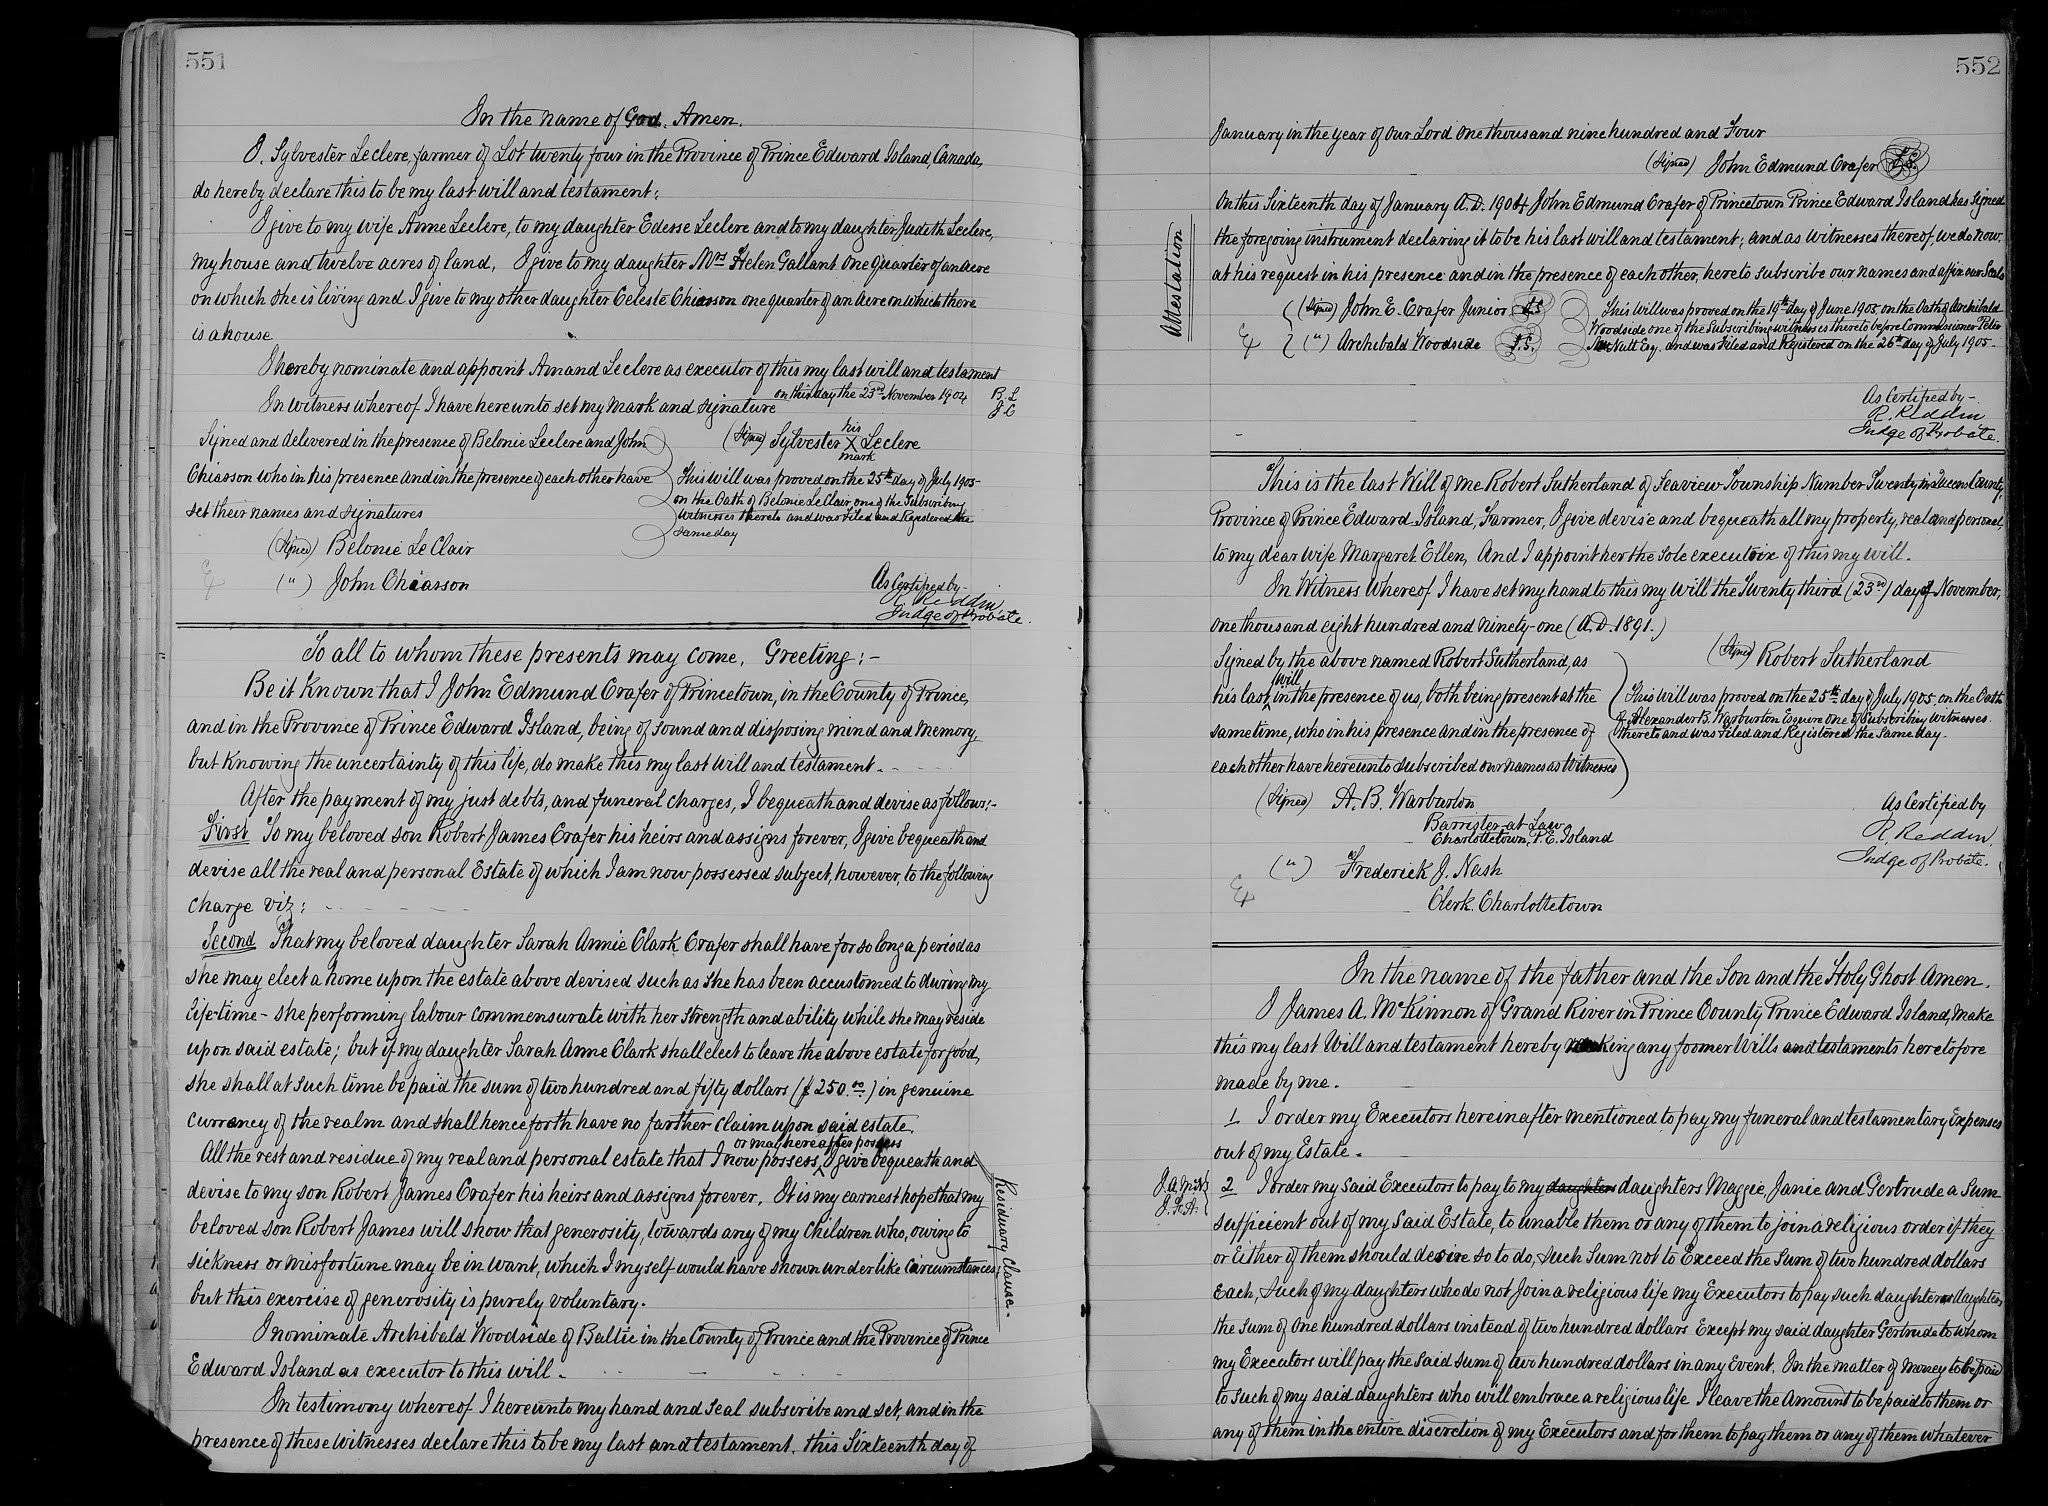 551
In the name of God. Amen.
I, Sylvester Leclere, farmer of Lot twenty four in the Province of Prince Edward Island, Canada,
do hereby declare this to be my last will and testament:
I give to my wife Anne Leclere, to my daughter Edesse Leclere and to my daughter Judith Leclere,
my house and twelve acres of land. I give to my daughter Mrs Helen Gallant one quarter of an acre
on which she is living and I give to my other daughter Celeste Chiasson one quarter of an acre on which there
is a house
I hereby nominate and appoint Amand Leclere as executor of this my last will and testament
on this day the 23rd November 1904 B. L
In witness whereof I have hereunto set my mark and signature J. C
Signed and delivered in the presence of Belonie Leclere and John
(Signed) Sylvester his X mark Leclere
Chiasson who in his presence and in the presence of each other have
set their names and signatures
This will was proved on the 25th day of July 1905
on the Oath of Belonie LeClair one of the Subscribing
Witnesses thereto and was Filed and Registered the
same day
(Signed) Belonie LeClair
(") John Chiasson
As Certified by-
R. Reddin,
Judge of Probate.
To all to whom these presents may come, Greeting:-
Be it Known that I John Edmund Crafer of Princetown, in the County of Prince,
and in the Province of Prince Edward Island, being of sound and disposing mind and memory
but knowing the uncertainty of this life, do make this my last will and testament.
After the payment of my just debts, and funeral charges, I bequeath and devise as follows:-
First To my beloved son Robert James Crafer his heirs and assigns forever, I give bequeath and
devise all the real and personal Estate of which I am now possessed subject, however, to the following
charge viz:
Second That my beloved daughter Sarah Annie Clark Crafer shall have for so long a period as
she may elect a home upon the estate above devised such as she has been accustomed to during my
life-time - she performing labour commensurate with her strength and ability while she may reside
upon said estate; but if my daughter Sarah Anne Clark shall elect to leave the above estate for good,
she shall at such time be paid the sum of two hundred and fifty dollars ($ 250.00) in genuine
currency of the realm and shall henceforth have no farther claim upon said estate.
or may hereafter possess
All the rest and residue of my real and personal estate that I now possess, I give bequeath and
devise to my son Robert James Crafer his heirs and assigns forever. It is my earnest hope that my
beloved son Robert James will show that generosity, towards any of my children who, owing to
sickness or misfortune may be in want, which I myself would have shown under like circumstances;
but this exercise of generosity is purely voluntary.
Residuary Clause.
I nominate Archibald Woodside of Baltic in the County of Prince and the Province of Prince
Edward Island as executor to this will.
In testimony whereof I hereunto my hand and seal subscribe and set, and in the
presence of these witnesses declare this to be my last and testament, this Sixteenth day of
552
January in the year of our Lord one thousand nine hundred and Four
(Signed) John Edmund Crafer L.S.
On this Sixteenth day of January A.D. 1904 John Edmund Crafer of Princetown Prince Edward Island has signed
the foregoing instrument declaring it to be his last will and testament; and as witnesses thereof, we do now
at his request in his presence and in the presence of each other, hereto subscribe our names and affix our Seals
Attestation
(Signed) John E. Crafer Junior L.S.
(") Archibald Woodside L.S.
This will was proved on the 19th day of June 1905, on the Oath of Archibald
Woodside one of the Subscribing witnesses thereto before Commissioner Peter
McNutt Esq. and was Filed and Registered on the 26th day of July 1905-
As Certified by-
R. Reddin
Judge of Probate.
This is the last Will of me Robert Sutherland of Seaview Township Number Twenty in Queens County,
Province of Prince Edward Island, Farmer, I give devise and bequeath all my property, real and personal,
to my dear wife Margaret Ellen, And I appoint her the sole executrix of this my will.
In Witness Whereof I have set my hand to this my will the Twenty third (23rd) day of November,
one thousand eight hundred and ninety-one (A.D. 1891.)
Signed by the above named Robert Sutherland, as
(Signed) Robert Sutherland
will
his last in the presence of us, both being present at the
same time, who in his presence and in the presence of
each other have hereunto subscribed our names as Witnesses
This will was proved on the 25th day of July 1905 on the Oath
of Alexander B. Warburton Esquire one of Subscribing Witnesses
thereto and was Filed and Registered the same day.
(Signed) A. B. Warburton
Barrister-at Law
Charlottetown, P. E. Island
(") Frederick J. Nash
Clerk. Charlottetown
As Certified by
R. Reddin.
Judge of Probate.
In the name of the father and the Son and the Holy Ghost Amen.
I James A. McKinnon of Grand River in Prince County, Prince Edward Island, make
this my last Will and testament hereby revoking any former Wills and testaments heretofore
made by me.
1 I order my Executors hereinafter mentioned to pay my funeral and testamentary Expenses
out of my Estate.
2 I order my said Executors to pay to my daughters daughters Maggie, Janie and Gertrude a Sum
sufficient out of my Said Estate, to unable them or any of them to join a religious order if they
or Either of them should desire so to do, such Sum not to Exceed the Sum of two hundred dollars
Each, Such of my daughters who do not Join a religious life my Executors to pay such daughter or daughters
the sum of One hundred dollars instead of two hundred dollars Except my said daughter Gertrude to whom
my Executors will pay the said sum of two hundred dollars in any Event. In the matter of money to be paid
to such of my said daughters who will embrace a religious life I leave the Amount to be paid to them or
any of them in the entire discretion of my Executors and for them to pay them or any of them whatever